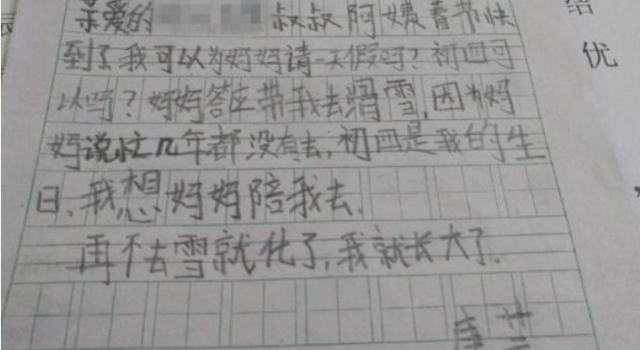 亲爱的 叔叔阿姨春节快
到了我可以为妈妈请一天假吗？初四可
以吗？妈妈答应带我去滑雪，因为妈
妈说忙几年都没有去，初四是我的生
日，我想妈妈陪我去.
再不去雪就化了，我就长大了.
优